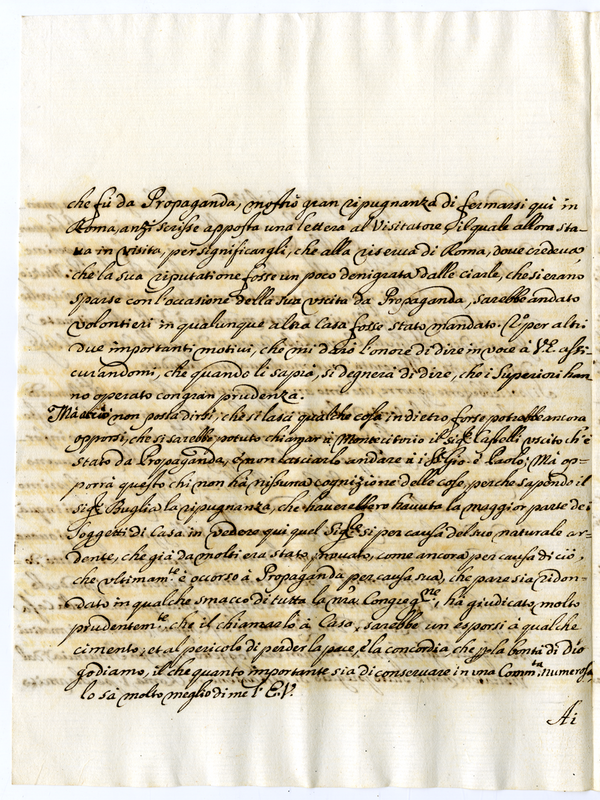 che fù da Propaganda, mostrò gran ripugnanza di fermarsi qui in
Roma, anzi scrisse apposta una lettera al Visitatore, il quale allora sta-
va in visita, per significargli, che alla riserva di Roma, dove credeva
che la sua riputatione fosse un poco denigrata dalle ciarle, che si erano
sparse con l'occasione della sua uscita da Propaganda, sarebbe andato
volontieri in qualunque altra Casa fosse stato mandato. per altri
due importanti motivi, che mi darò l'onore di dire in voce à V.E. assi-
curandomi, che quando li saprà, si degnerà di dire, che i Superiori han-
no operato con gran prudenza.
Ma acciò non possa dirsi, che si lasci qualche cosa indietro forse potrebbe ancora
opporsi, che si sarebbe potuto chiamar à Montecitorio il Sig.r Capelli uscito ch'è
stato da Propaganda, e non lasciarlo andare à i SS. Gio: e Paolo; Mà op-
porrà questo chi non hà nissuna cognizione delle cose, perche sapendo il
Sig.r Buglia la ripugnanza, che haverebbero havuta la maggior parte dei
Soggetti di Casa in vedere qui quel Sig.re si per causa del suo naturale ar-
dente, che già da molti era stato provato, come ancora per causa di ciò,
che ultimam.te è occorso à Propaganda per causa sua, che pare sia ridon-
dato in qualche smacco di tutta la nra Congreg.ne, hà giudicato, molto
prudentem.te che il chiamarlo à Casa, sarebbe un esporsi à qualche
cimento, et al pericolo di perder la pace, e la concordia che p la bontà di Dio
godiamo, il che quanto importante sia di conservare in una Comm.tà numerosa
lo sà molto meglio di me l'E.V.
Ai